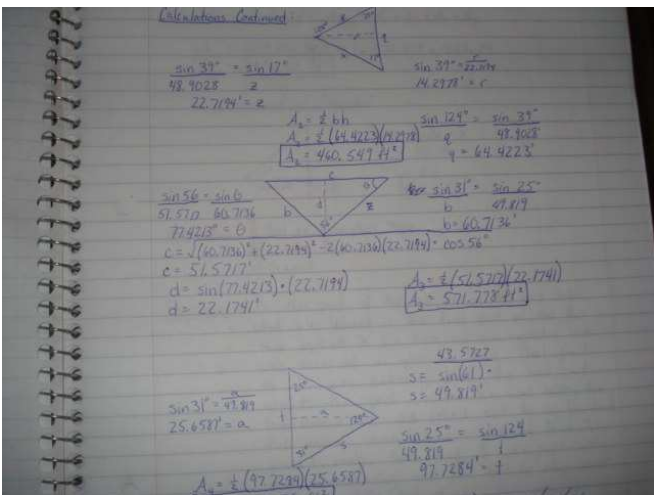 Calculations Continued
sin 39° = sin 17°
48.9028 z
22.7194' = z
sin 39° = r
22.7194
14.2978' = r
A₂ = ½ bh
A₂ = ½ (64.4223)(14.2978)
A₂ = 460.549 ft²
sin 124° = sin 39°
q 48.9028
q = 64.4223'
sin 56 = sin θ
51.57 60.7136
77.4213° = θ
c
b
d
z
sin 31° = sin 25°
b 49.819
b = 60.7136'
c = √(60.7136)² + (22.7194)² - 2(60.7136)(22.7194) · cos 56°
c = 51.5717'
d = sin(77.4213) · (22.7194)
d = 22.1741'
A₃ = ½ (51.5717)(22.1741)
A₃ = 571.778 ft²
43.5727
s = sin(61)
s = 49.819'
25°
t
a
124°
31°
s
sin 31° = a
49.819
25.6587' = a
sin 25° = sin 124
49.819 t
97.7284' = t
A₄ = ½ (97.7284)(25.6587)